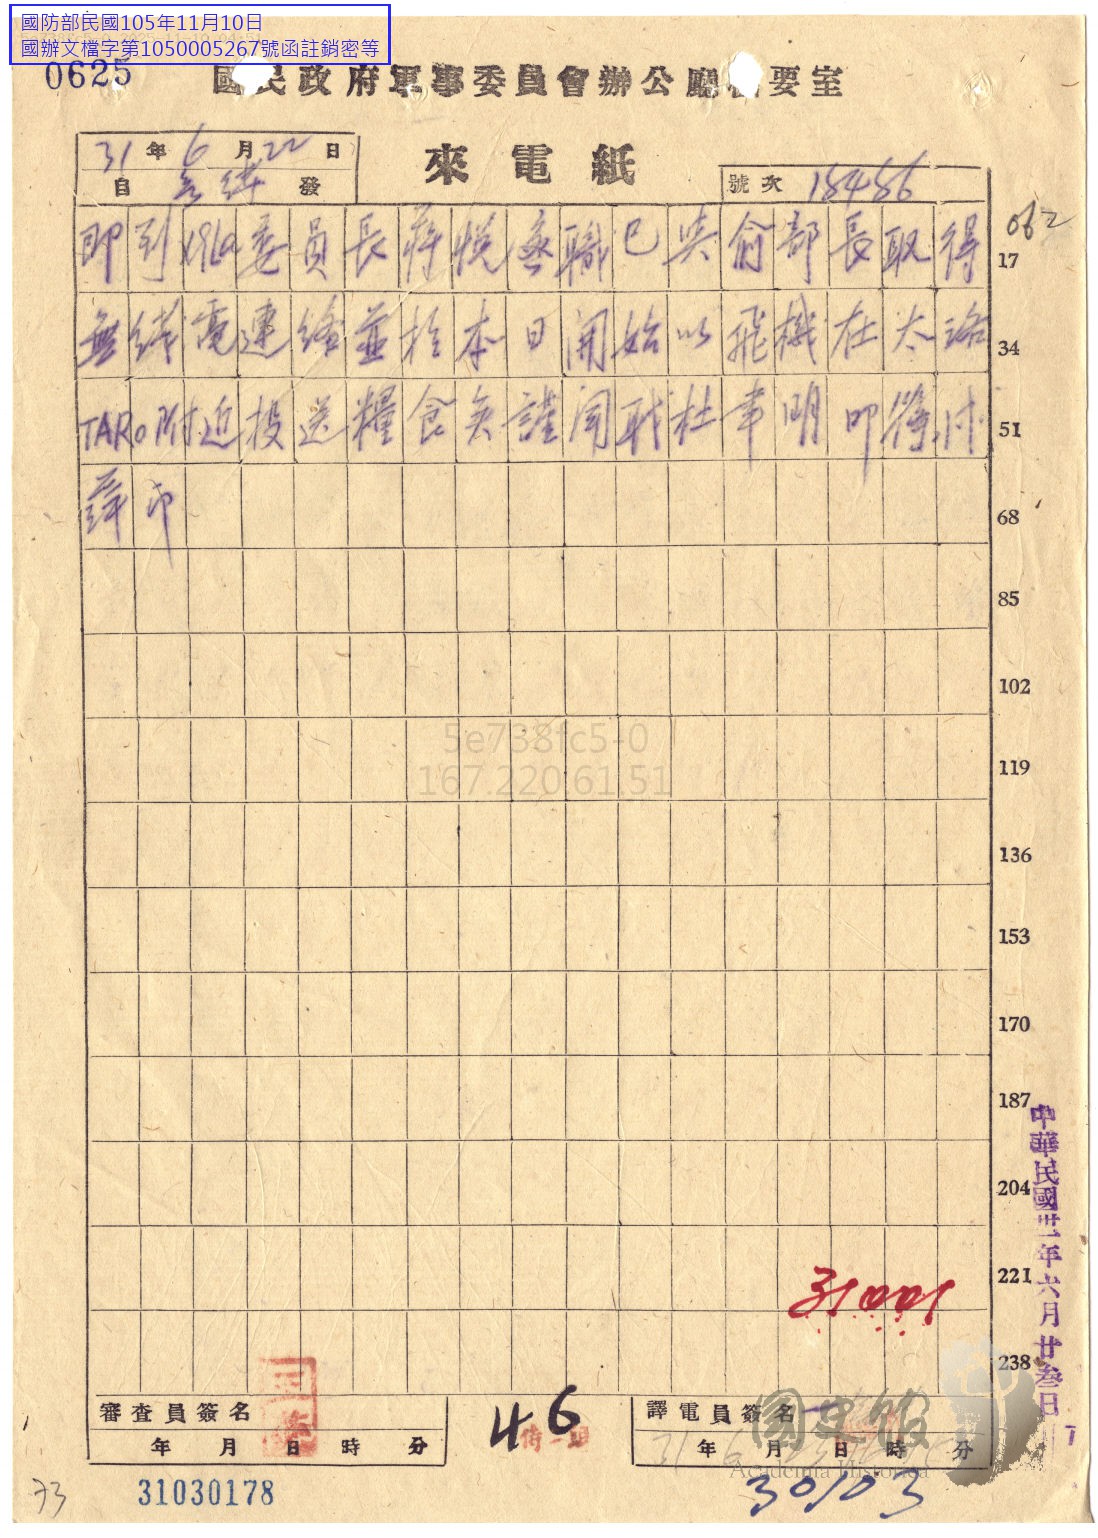 國防部民國105年11月10日
國辦文檔字第1050005267號函註銷密等
0625
國民政府軍事委員會辦公廳機要室
31年6月22日
自 發
來電紙
號次 18486
062
即到 委員長蔣悅密職已與俞部長取得 17
無线電連絡並於本日開始以飛機在太洛 34
TARO附近投送糧食矣謹聞职杜聿明叩 51
印 68
85
102
119
136
153
170
187
204
221
238
5e738fc5-0
167.220.61.51
中華民國卅一年六月廿叁日
31001
審查員簽名
年 月 日 時 分
46
譯電員簽名
31年6月 日 時 分
國史館
Academia Historica
73
31030178
30103